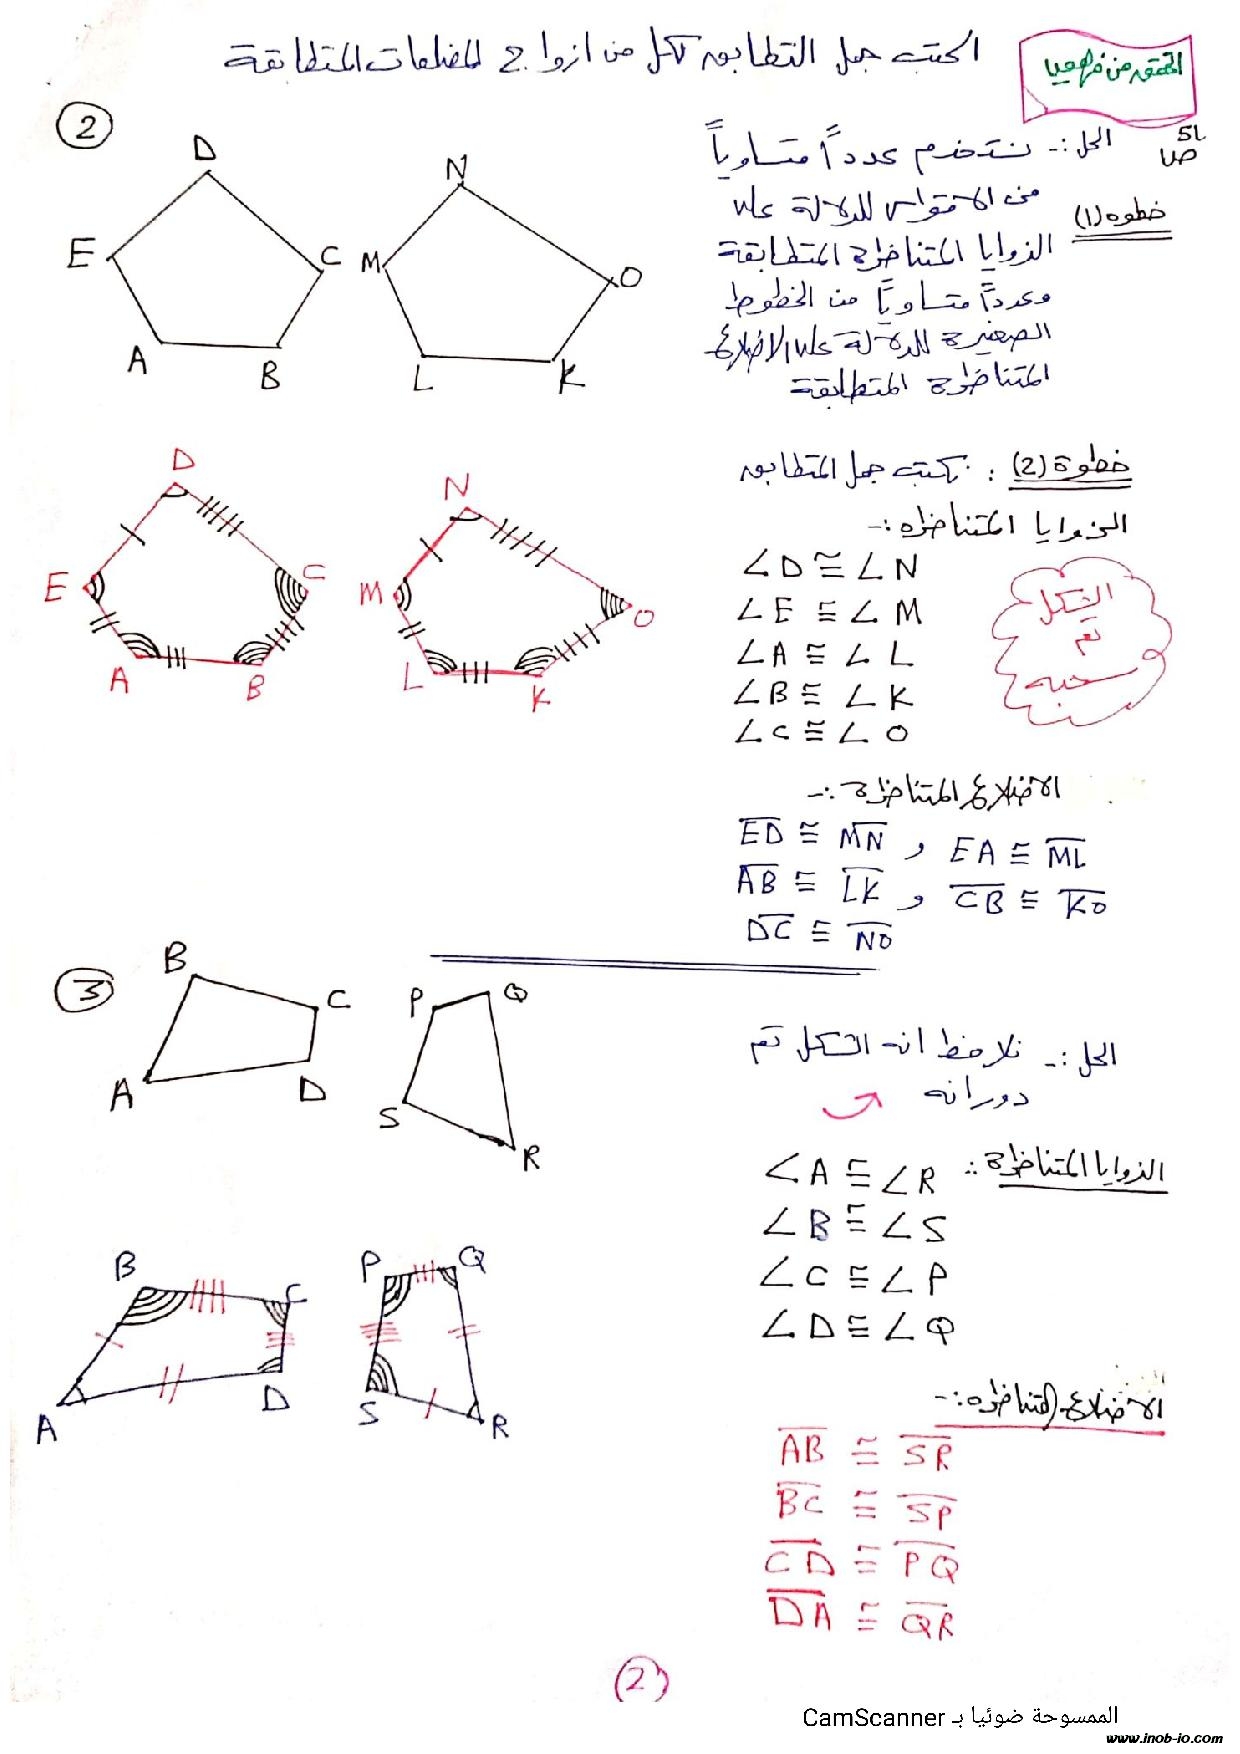 التحقق من فهمي
اكتب جمل التطابق لكل من ازواج المضلعات المتطابقة
ص 51
2
D
E
C
A
B
N
M
O
L
K
الحل :- نستخدم عدداً متساوياً
خطوه (1)
من الاقواس للدلالة على
الزوايا المتناظرة المتطابقة
وعدداً متساوياً من الخطوط
الصغيرة للدلالة على الاضلاع
المتناظرة المتطابقة
D
E
C
A
B
N
M
O
L
K
خطوة (2) : نكتب جمل التطابق
الزوايا المتناظره :-
∠D ≅ ∠N
∠E ≅ ∠M
∠A ≅ ∠L
∠B ≅ ∠K
∠C ≅ ∠O
الشكل
تم
سحبه
الاضلاع المتناظرة :-
E̅D̅ ≅ M̅N̅ و EA ≅ M̅L̅
A̅B̅ ≅ L̅K̅ و C̅B̅ ≅ K̅O̅
D̅C̅ ≅ N̅O̅
3
B
C
A
D
P
Q
S
R
الحل :- نلاحظ انه الشكل تم
دورانه
الزوايا المتناظرة :-
∠A ≅ ∠R
∠B ≅ ∠S
∠C ≅ ∠P
∠D ≅ ∠Q
B
C
A
D
P
Q
S
R
الاضلاع المتناظره :-
A̅B̅ ≅ S̅R̅
B̅C̅ ≅ S̅P̅
C̅D̅ ≅ P̅Q̅
D̅A̅ ≅ Q̅R̅
2
الممسوحة ضوئيا بـ CamScanner
www.inob-jo.com